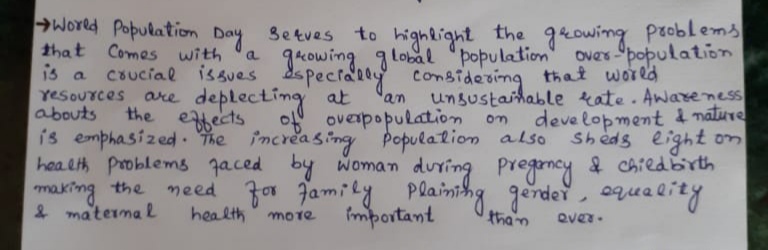 →World Population Day serves to highlight the growing problems
that comes with a growing global population over-population
is a crucial issues especially considering that world
resources are deplecting at an unsustainable rate. Awareness
abouts the effects of overpopulation on development & nature
is emphasized. The increasing population also sheds light on
health problems faced by woman during Pregancy & childbirth
making the need for family plaining gender, equality
& maternal health more important than ever.